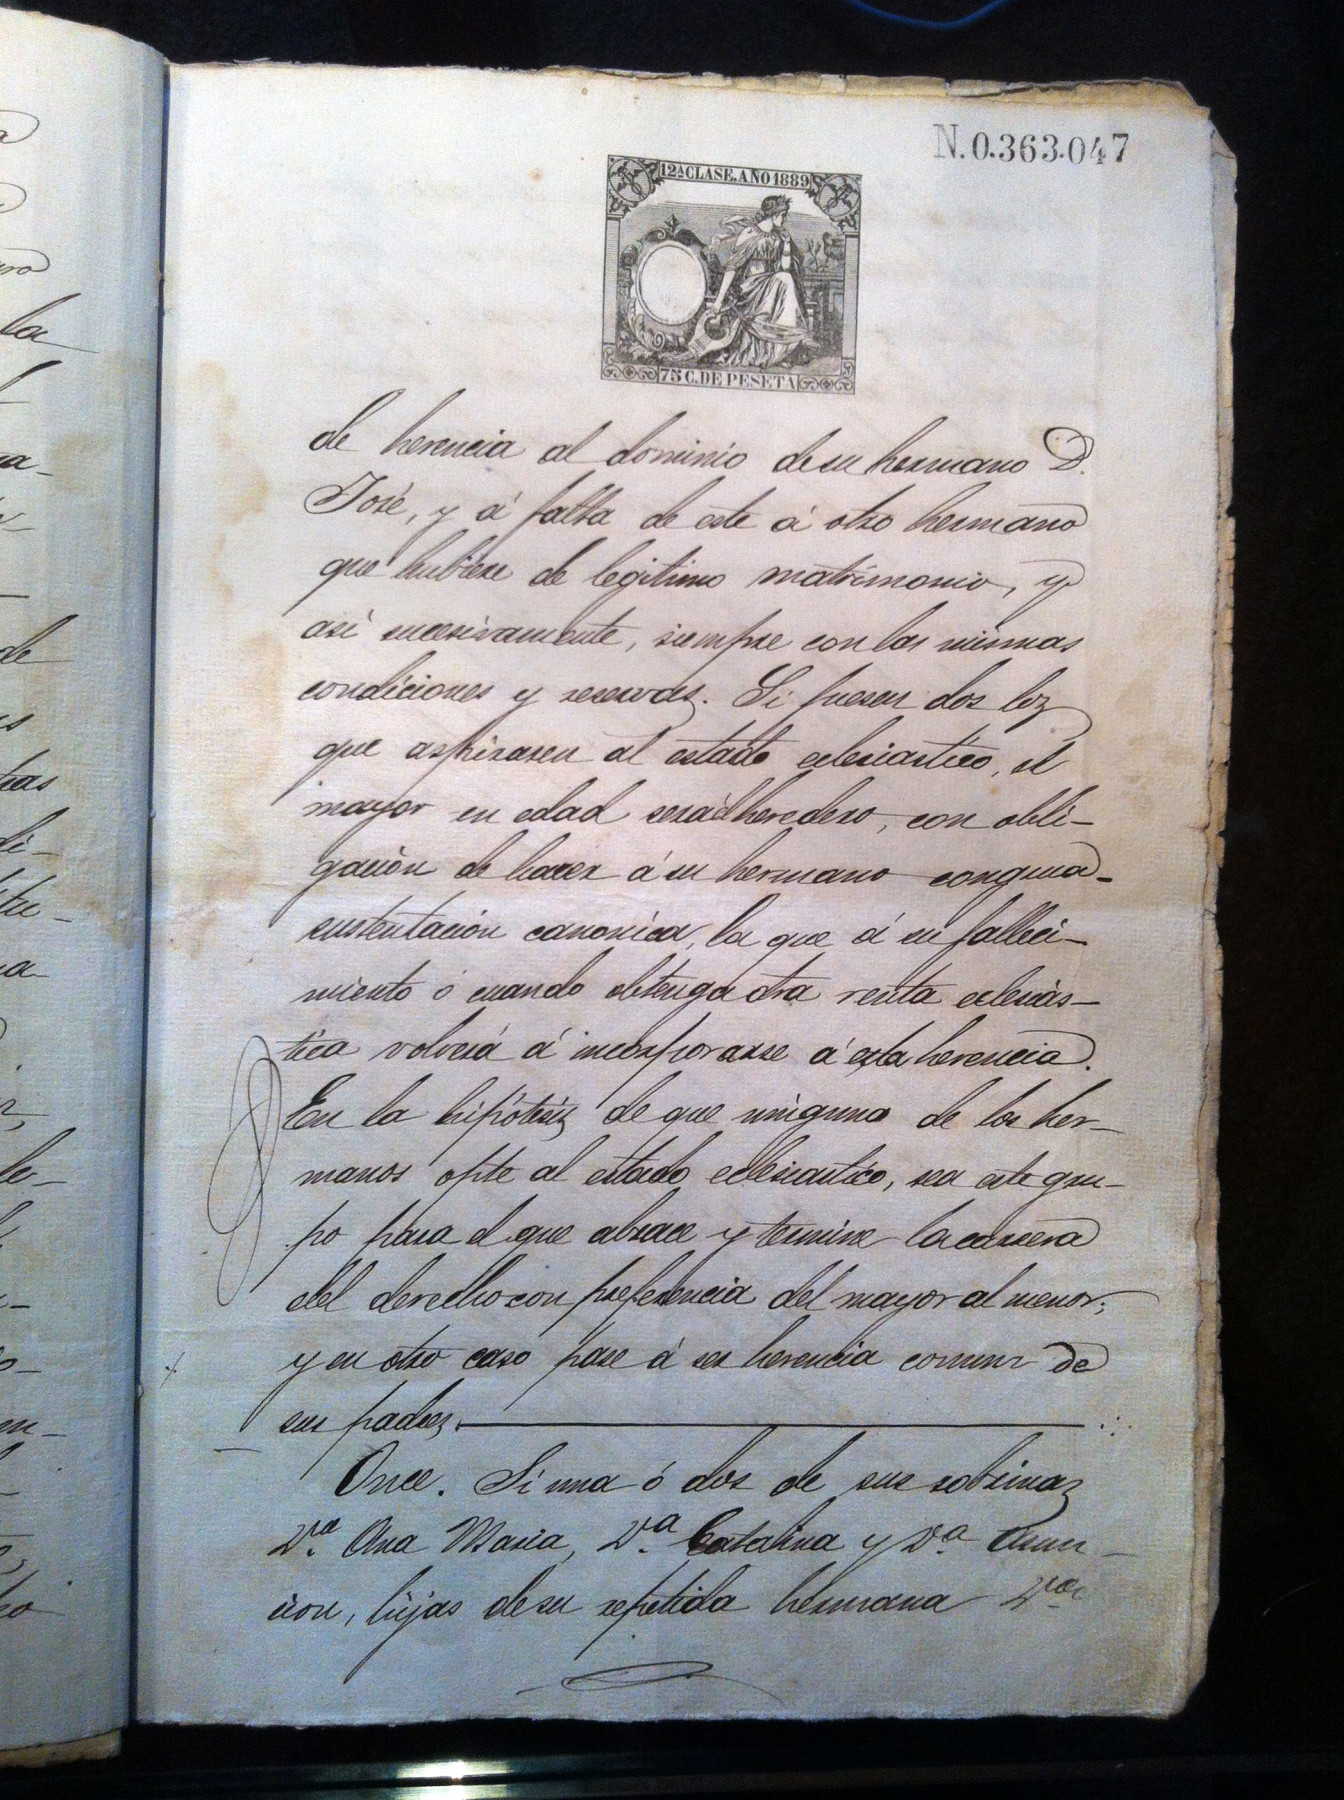 N.0.363.047
12ª CLASE. AÑO 1889
75 C. DE PESETA
de herencia al dominio de su hermano D.
José, y á falta de este á otro hermano
que hubiere de legitimo matrimonio, y
asi sucesivamente, siempre con las mismas
condiciones y reservas. Si fuesen dos los
que aspirasen al estado eclesiastico, el
mayor en edad será el heredero, con obli-
gación de hacer á su hermano congrua
sustentación canonica, la que á su falleci-
miento ó cuando obtenga otra renta eclesiás-
tica volverá á incorporarse á esta herencia.
En la hipótesis de que ninguno de los her-
manos opte al estado eclesiastico, sea este gru-
po para el que abrace y termine la carrera
del derecho con preferencia del mayor al menor;
y en otro caso pase á ser herencia comun de
sus padres.
Once. Si una ó dos de sus sobrinas
Dª. Ana Maria, Dª. Catalina y Dª. Asun-
cion, hijas de su repetida hermana Dª
la
de
tras
di-